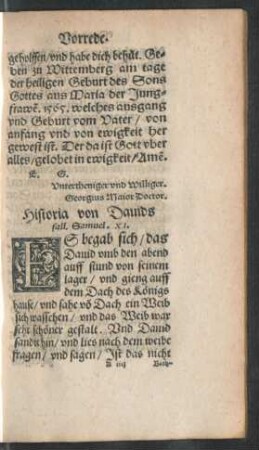 Vorrede.
geholffen/ vnd habe dich behüt. Ge-
ben zu Wittemberg am tage
der heiligen Geburt des Sons
Gottes aus Maria der Jung-
frawē. 1565. welches ausgang
vnd Geburt vom Vater/ von
anfang vnd von ewigkeit her
gewest ist. Der da ist Gott vber
alles/ gelobet in ewigkeit/ Amē.
E. G.
Vntertheniger vnd Williger.
Georgius Maior Doctor.
Historia von Dauids
fall. Samuel. XI.
ES begab sich/ das
Dauid vmb den abend
auff stund von seinem
lager/ vnd gieng auff
dem Dach des Königs
hause/ vnd sahe vō Dach ein Weib
sich wasschen/ vnd das Weib war
sehr schöner gestalt. Vnd Dauid
sandte hin/ vnd lies nach dem weibe
fragen/ vnd sagen/ Ist das nicht